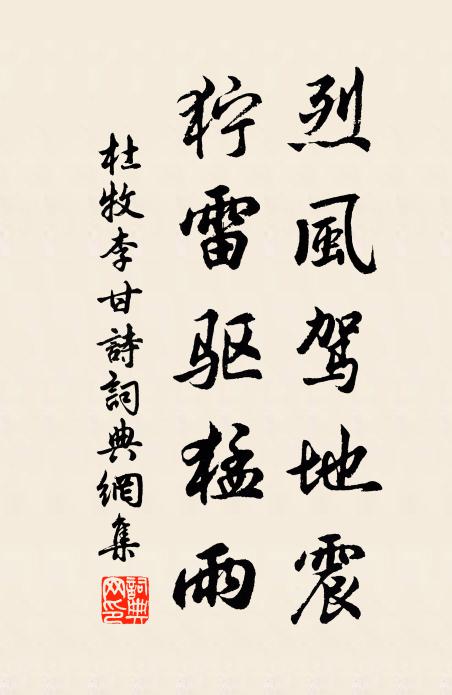 烈風駕地震
狞雷驱猛雨
杜牧李甘詩詞典網集
詞典网印